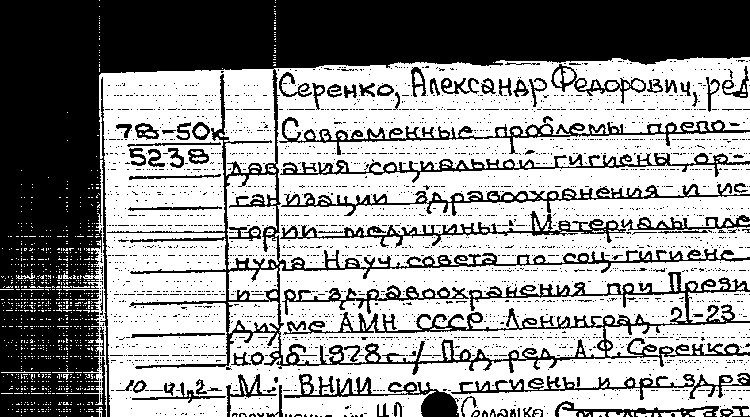 Серенко, Александр Федорович, ред
78-50к Современные проблемы препо-
5238 давания социальной гигиены, ор-
ганизации здравоохранения и ис
тории медицины: Материалы пле
нума Науч. совета по соц. гигиене
и орг. здравоохранения при Прези
диуме АМН СССР. Ленинград, 21-23
нояб. 1978 г. / Под ред. А.Ф. Серенко.
М.: ВНИИ соц. гигиены и орг. здра